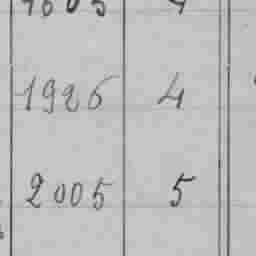 1926 4
2005 5